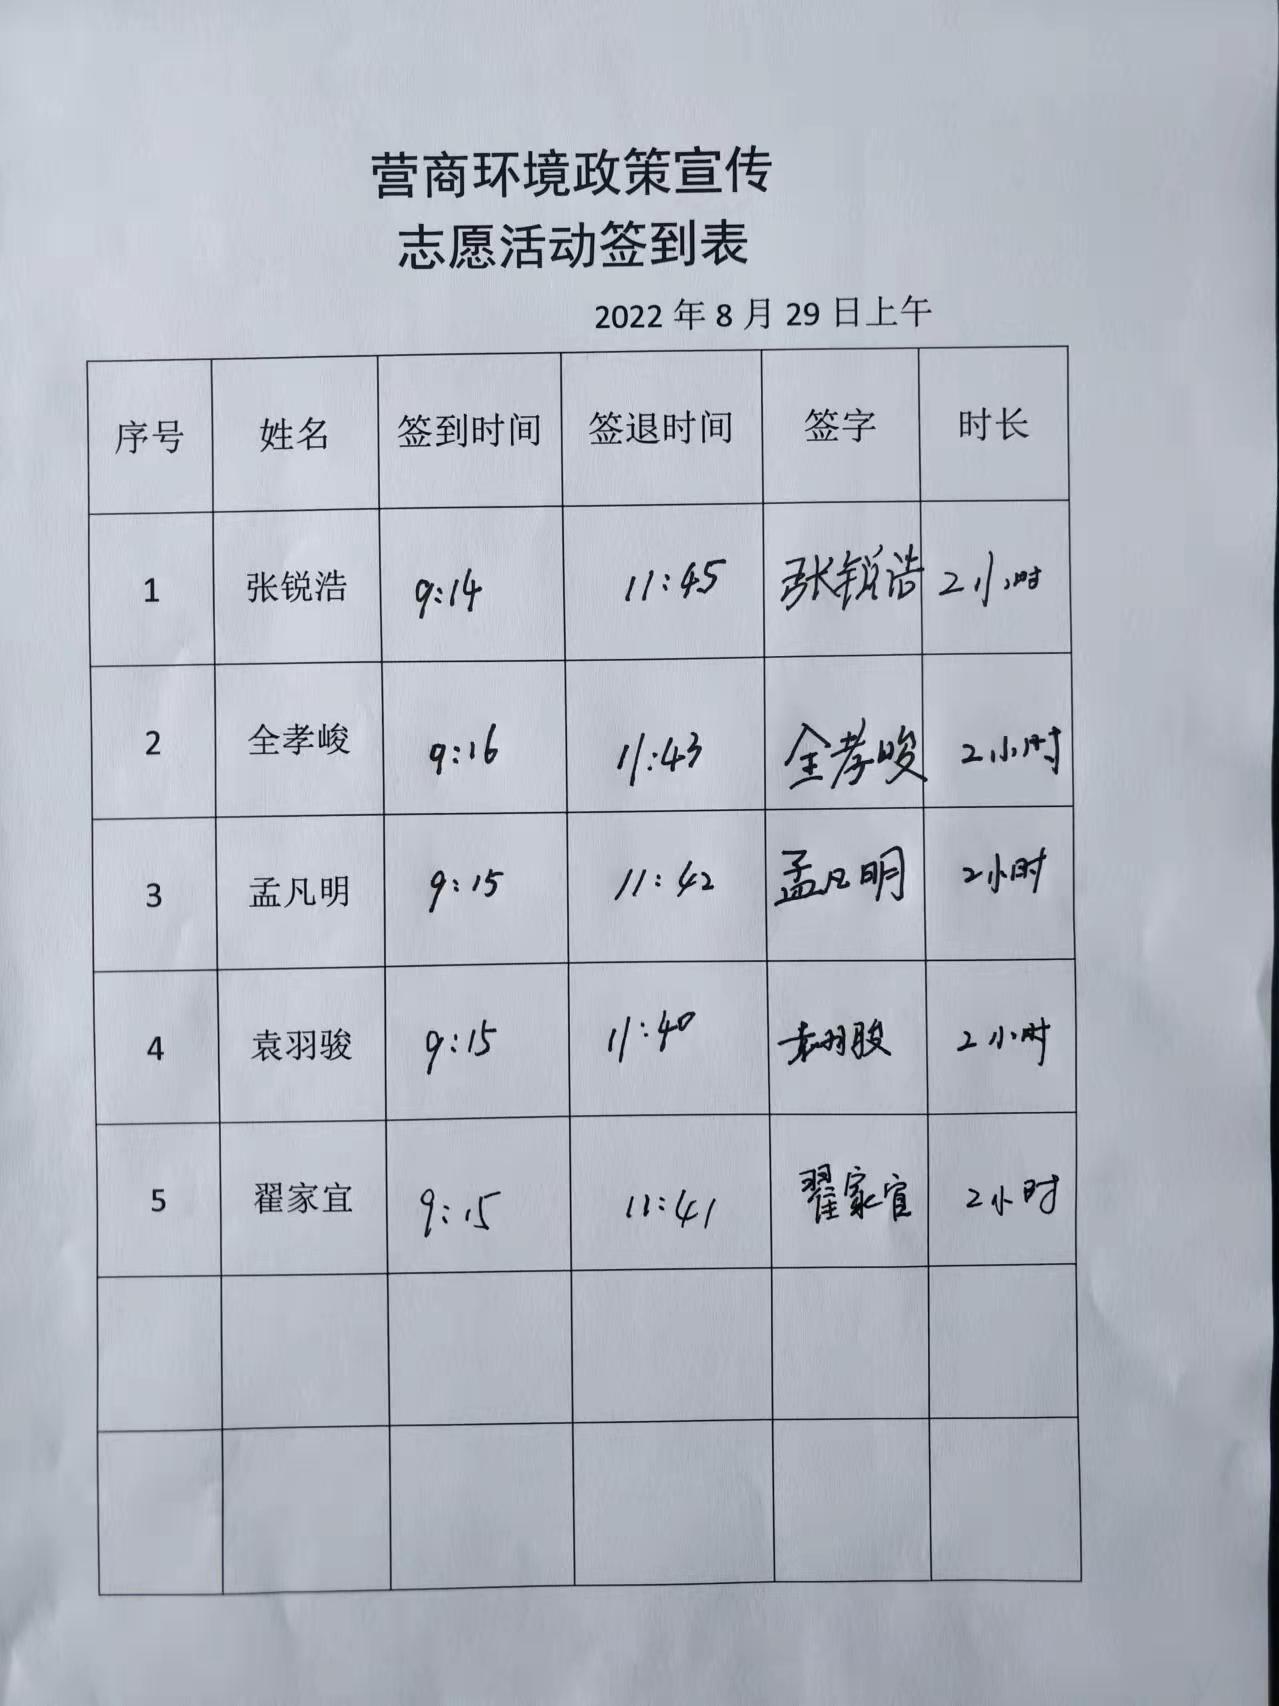 营商环境政策宣传
志愿活动签到表
2022 年 8 月 29 日上午
序号 姓名 签到时间 签退时间 签字 时长
1 张锐浩 9:14 11:45 张锐浩 2小时
2 全孝峻 9:16 11:43 全孝峻 2小时
3 孟凡明 9:15 11:42 孟凡明 2小时
4 袁羽骏 9:15 11:40 袁羽骏 2小时
5 翟家宜 9:15 11:41 翟家宜 2小时